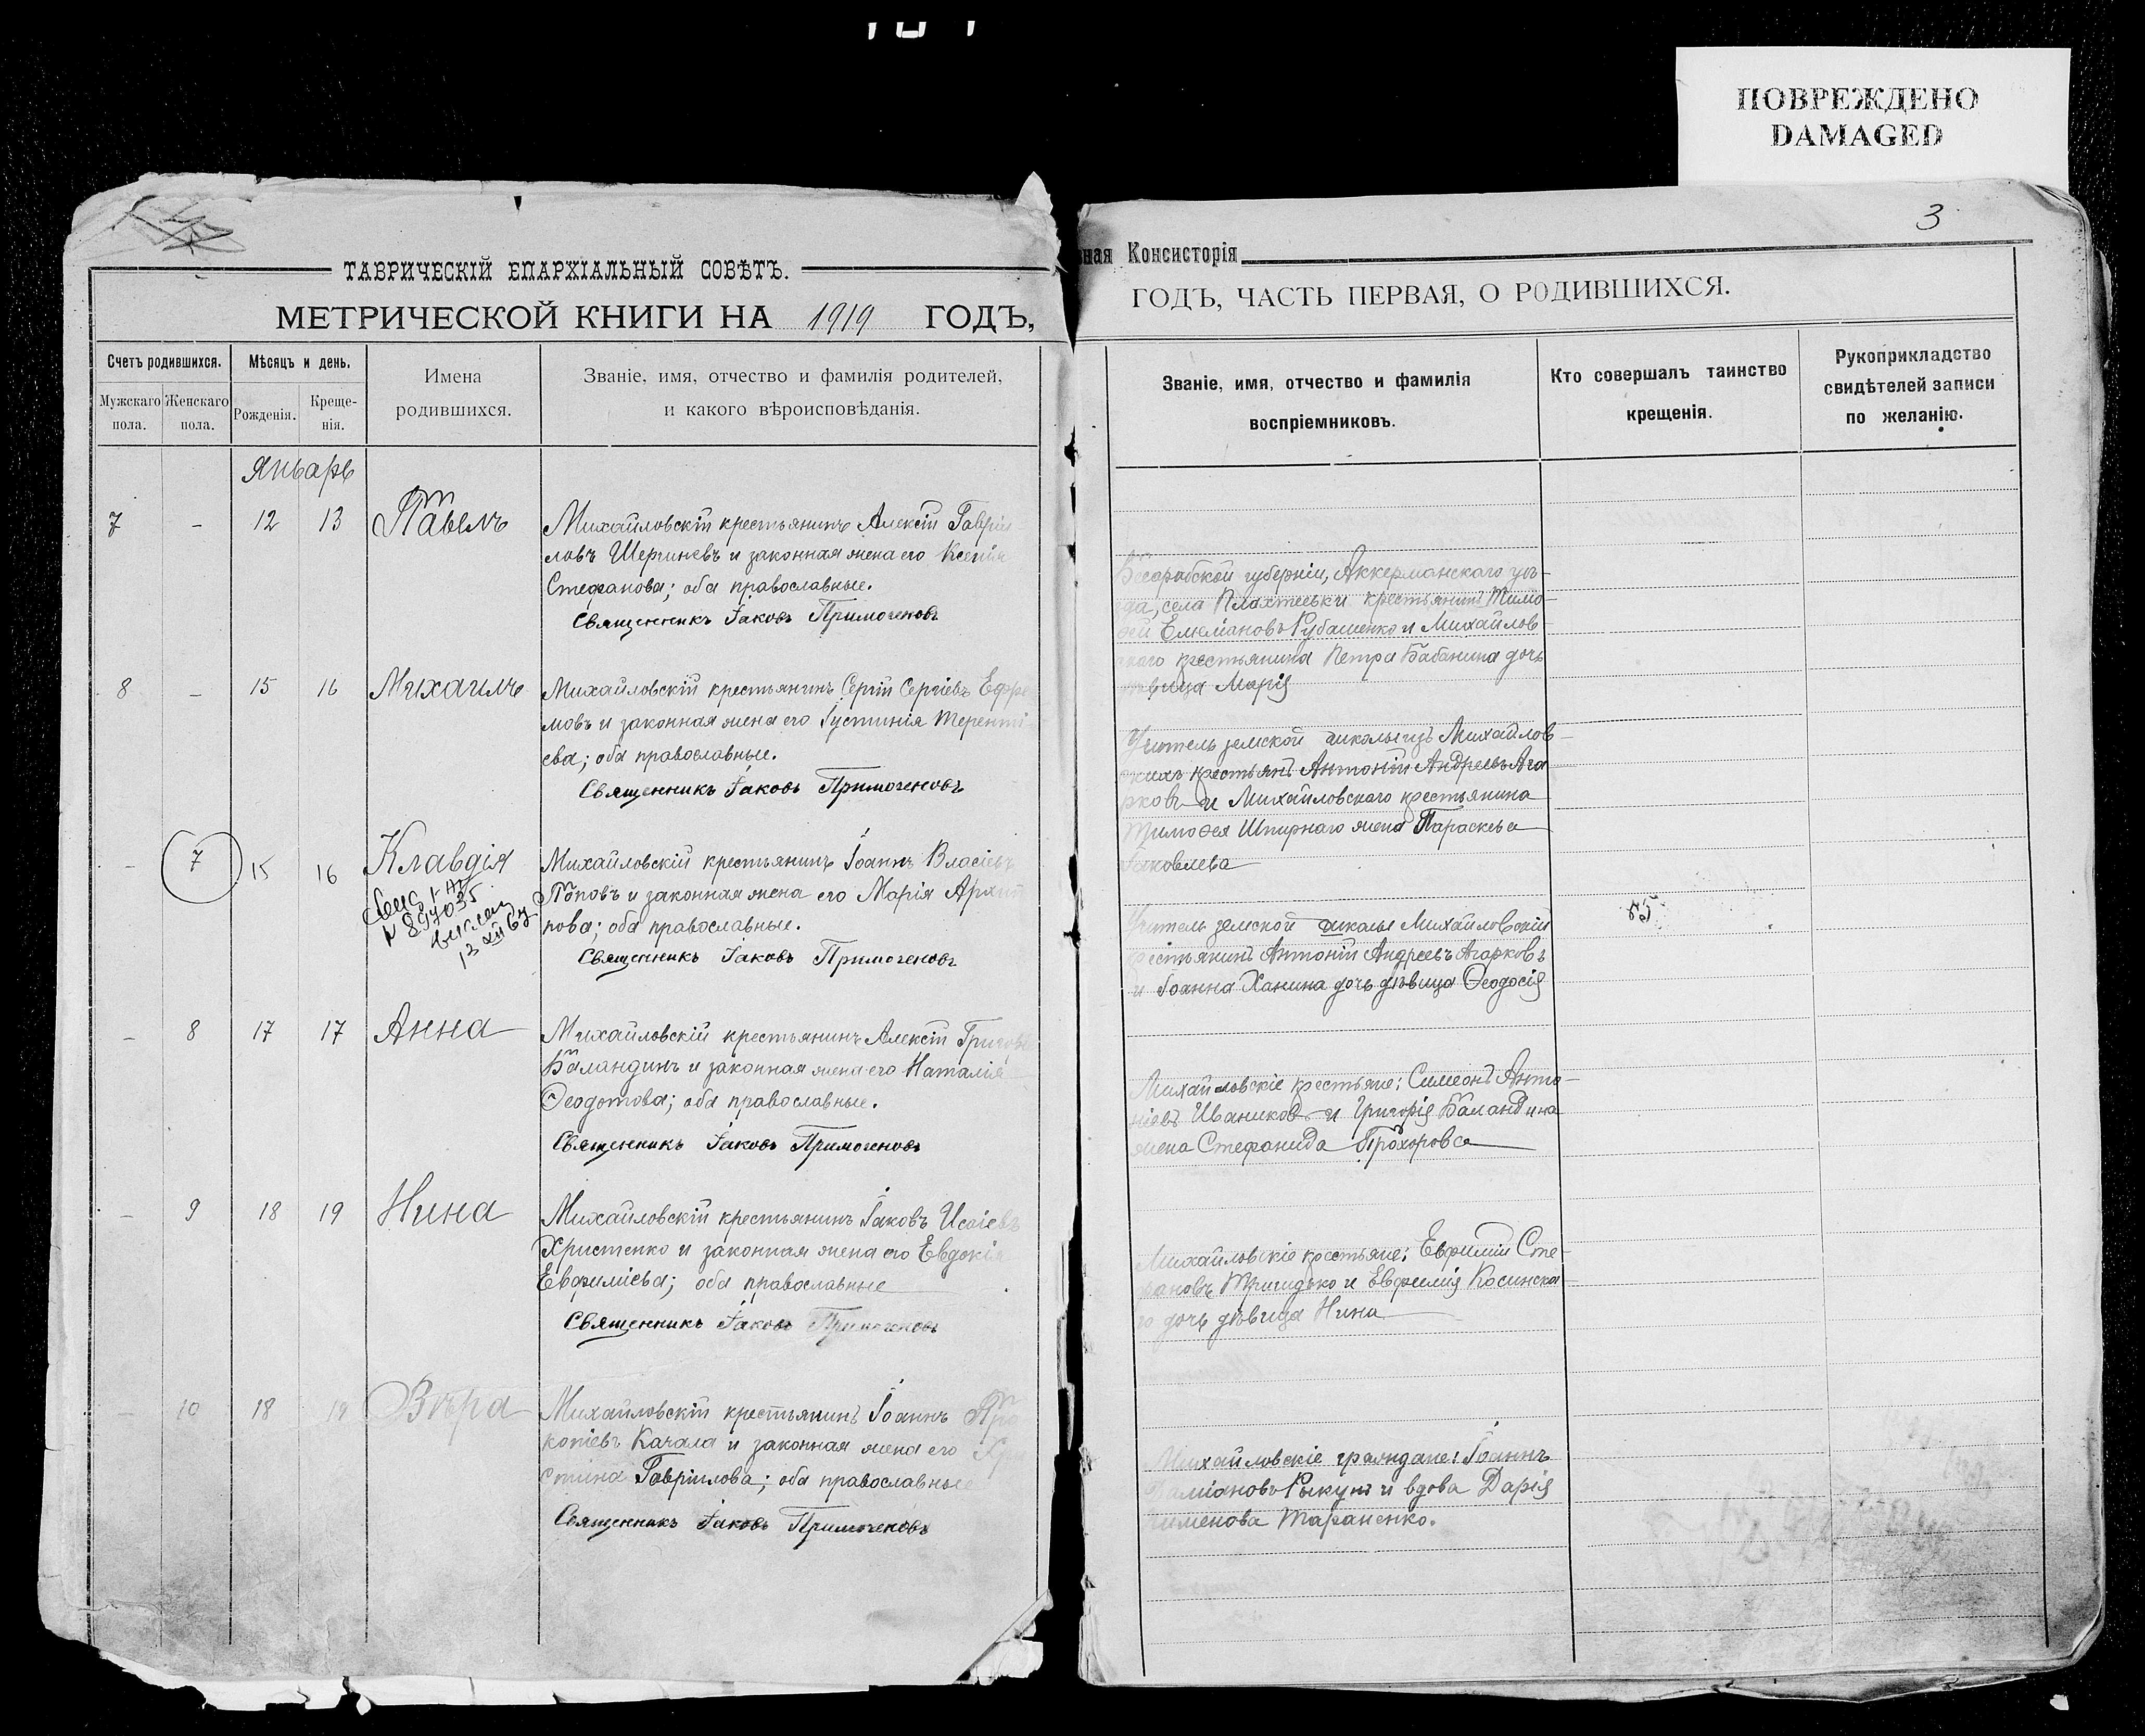 ПОВРЕЖДЕНО
DAMAGED
ТАВРИЧЕСКІЙ ЕПАРХІАЛЬНЫЙ СОВѢТЪ.
МЕТРИЧЕСКОЙ КНИГИ НА 1919 ГОДЪ,
Счетъ родившихся.
Мужскаго пола.
Женскаго пола.
Мѣсяцъ и день.
Рожденія.
Креще-
нія.
Имена
родившихся.
Званіе, имя, отчество и фамилія родителей,
и какого вѣроисповѣданія.
Январь
7 - 12 13 Павелъ Михайловскій крестьянинъ Алексій Гаврі
ловъ Шергиневъ и законная жена его Ксенія
Стефанова; оба православные.
Священникъ Іаковъ Примогеновъ
8 - 15 16 Михаилъ Михайловскій крестьянинъ Сергій Сергіевъ Ефре
мовъ и законная жена его Іустинія Теренті-
ева; оба православные.
Священникъ Іаковъ Примогеновъ
- 7 15 16 Клавдія Михайловскій крестьянинъ Іоаннъ Власіевъ
Поповъ и законная жена его Марія Архип
пова; оба православные.
Священникъ Іаковъ Примогеновъ
- 8 17 17 Анна Михайловскій крестьянинъ Алексій Григорьев
Баландинъ и законная жена его Наталія
Ѳеодотова; оба православные.
Священникъ Іаковъ Примогеновъ
- 9 18 19 Нина Михайловскій крестьянинъ Іаковъ Исаіевъ
Христенко и законная жена его Евдокія
Евфиміева; оба православные
Священникъ Іаковъ Примогеновъ
- 10 18 19 Вѣра Михайловскій крестьянинъ Іоаннъ Про
копіевъ Качала и законная жена его Хри
стина Гавріилова; оба православные
Священникъ Іаковъ Примогеновъ
3
ная Консисторія
ГОДЪ, ЧАСТЬ ПЕРВАЯ, О РОДИВШИХСЯ.
Званіе, имя, отчество и фамилія
воспріемниковъ.
Кто совершалъ таинство
крещенія.
Рукоприкладство
свидѣтелей записи
по желанію.
Бесарабской губерніи, Аккерманскаго уѣ-
да, села Плахтеевки крестьянинъ Тимо-
ѳей Емеліановъ Рубашенко и Михайлов
скаго крестьянина Петра Бабанина дочь
дѣвица Марія
Учитель земской школы изъ Михайлов-
скихъ крестьянъ Антоній Андреевъ Ага
рковъ и Михайловскаго крестьянина
Тимоѳея Шпирнаго жена Параскева
Іаковлева
Учитель земской школы Михайловскій
крестьянинъ Антоній Андреевъ Агарковъ
и Іоанна Ханина дочь дѣвица Ѳеодосія
Михайловскіе крестьяне: Симеонъ Анто-
ніевъ Иваниковъ и Григорія Баландина
жена Стефанида Прохорова
Михайловскіе крестьяне: Евфимій Сте-
фановъ Тригидько и Евфимія Косинска-
го дочь дѣвица Нина
Михайловскіе граждане: Іоаннъ
Даміановъ Рыкунъ и вдова Дарія
Сименова Тараненко.